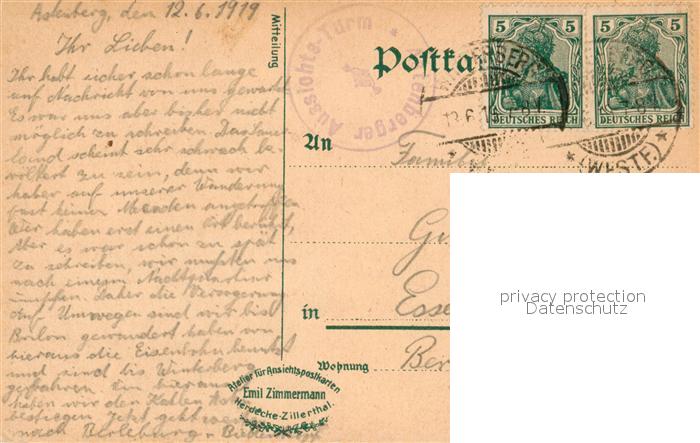 Astenberg, den 12.6.1919
Ihr Lieben!
Ihr habt sicher schon lange
auf Nachricht von uns gewartet
Es war uns aber bisher nicht
möglich zu schreiben. Das Sauer
land scheint sehr schwach be-
völkert zu sein, denn wir
haben auf unserer Wanderung
fast keinen Menschen angetroffen
Wir haben erst einen Ort berührt,
Aber es war schon zu spät
zu schreiben, wir mußten uns
nach einem Nachtquartier
umsehen. Daher die Verzögerung
Auf Umwegen sind wir bis
Brilon gewandert haben von
hieraus die Eisenbahn benutzt
und sind bis Winterberg
gefahren. Von hieraus
haben wir den Kahlen
bestiegen. Jetzt geht
nach Berleburg
Mitteilung
Aussichts-Turm * Astenberger
Postka
5 5
DEUTSCHES REICH DEUTSCHES REICH
13.6.1
* (WESTF) *
An
Familie
G
in
Esse
Wohnung
Ber
Atelier für Ansichtspostkarten
Emil Zimmermann
Herdecke-Zillerthal
privacy protection
Datenschutz